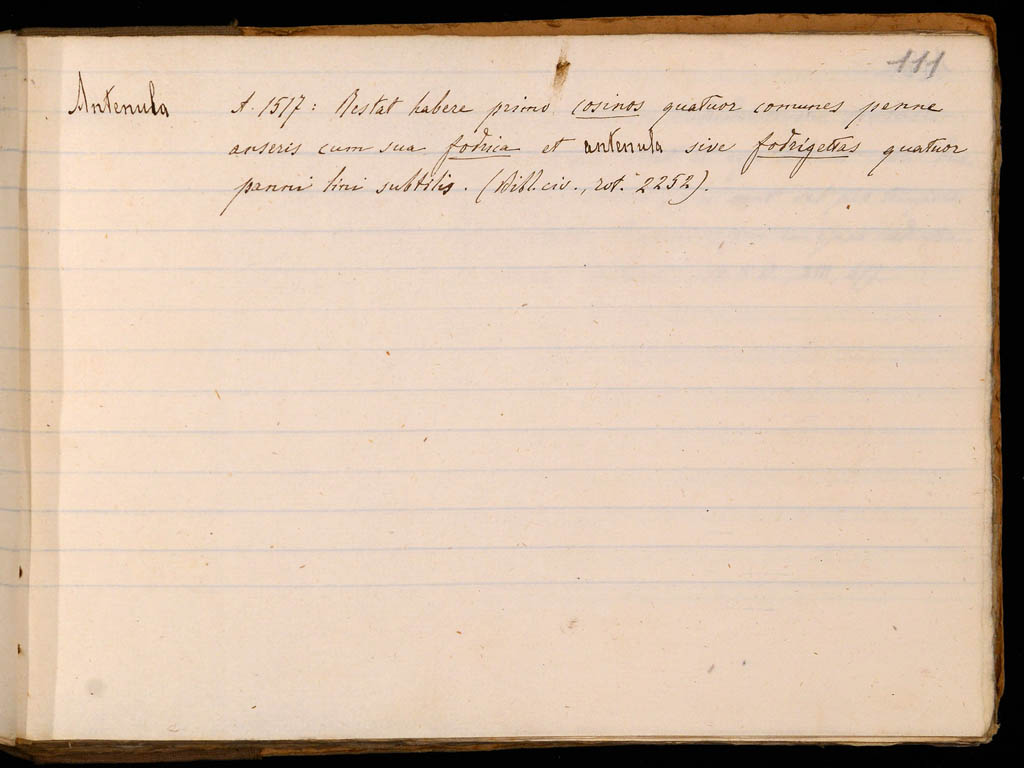 111
Antenula A. 1517: Restat habere primo cosinos quatuor comunes penne
anseris cum sua fodrica et antenula sive fodrigettas quatuor
panni lini subtilis. (Bibl. civ., rot. 2252).